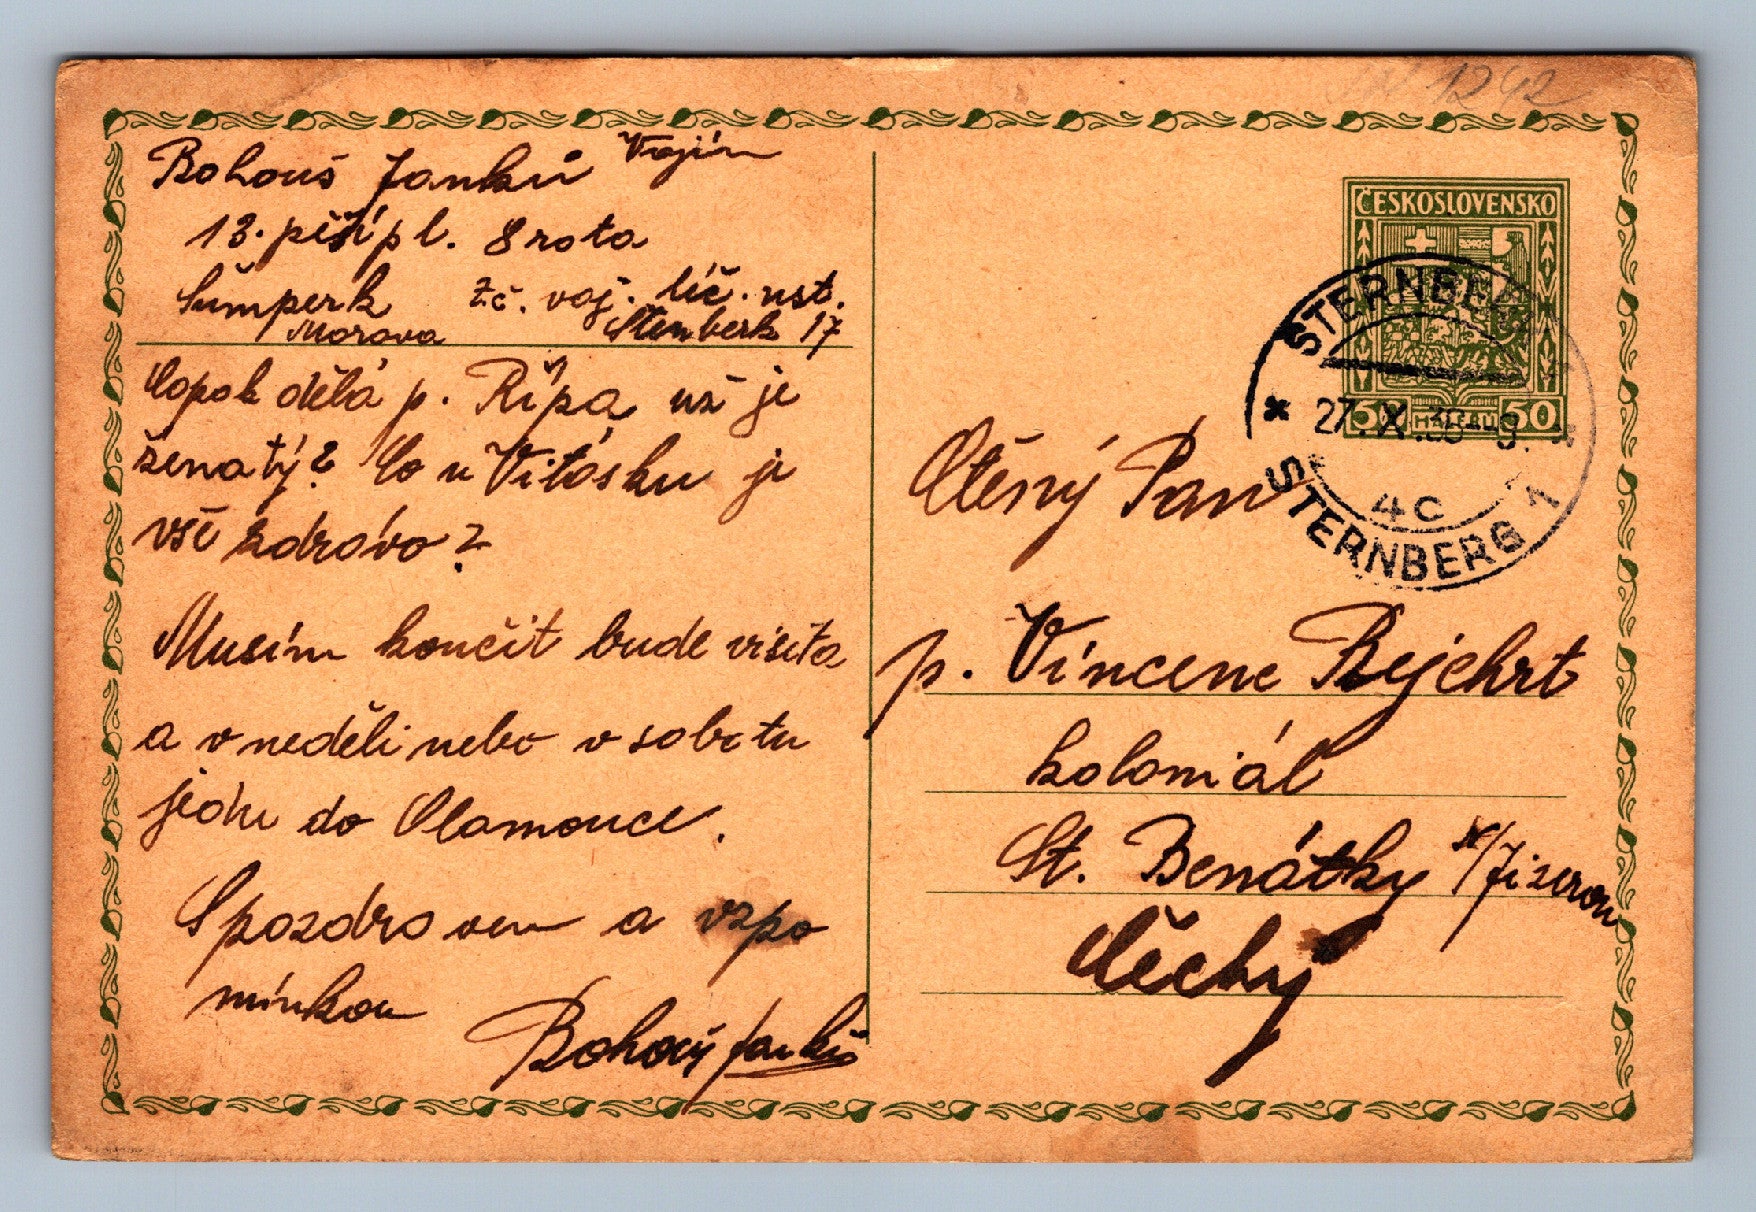 Vojín
Bohouš Janků
13. pěší pl. 8 rota
Šumperk t.č. voj. léč. ust.
Morava Šternberk 17
Copak dělá p. Řípa už je
ženatý? Co u Vitásku je
vše zdrávo?
Musím končit bude visita
a v neděli nebo v sobotu
jedu do Olomouce.
S pozdravem a vzpo
mínkou
Bohouš Janků
1242
ČESKOSLOVENSKO
50 HALÉŘŮ 50
STERNBERK 1
27. IX. 9
4c
STERNBERG 1
Ctěný Pan
p. Vincenc Rejchrt
koloniál
St. Benátky n/Jizerou
Čechy